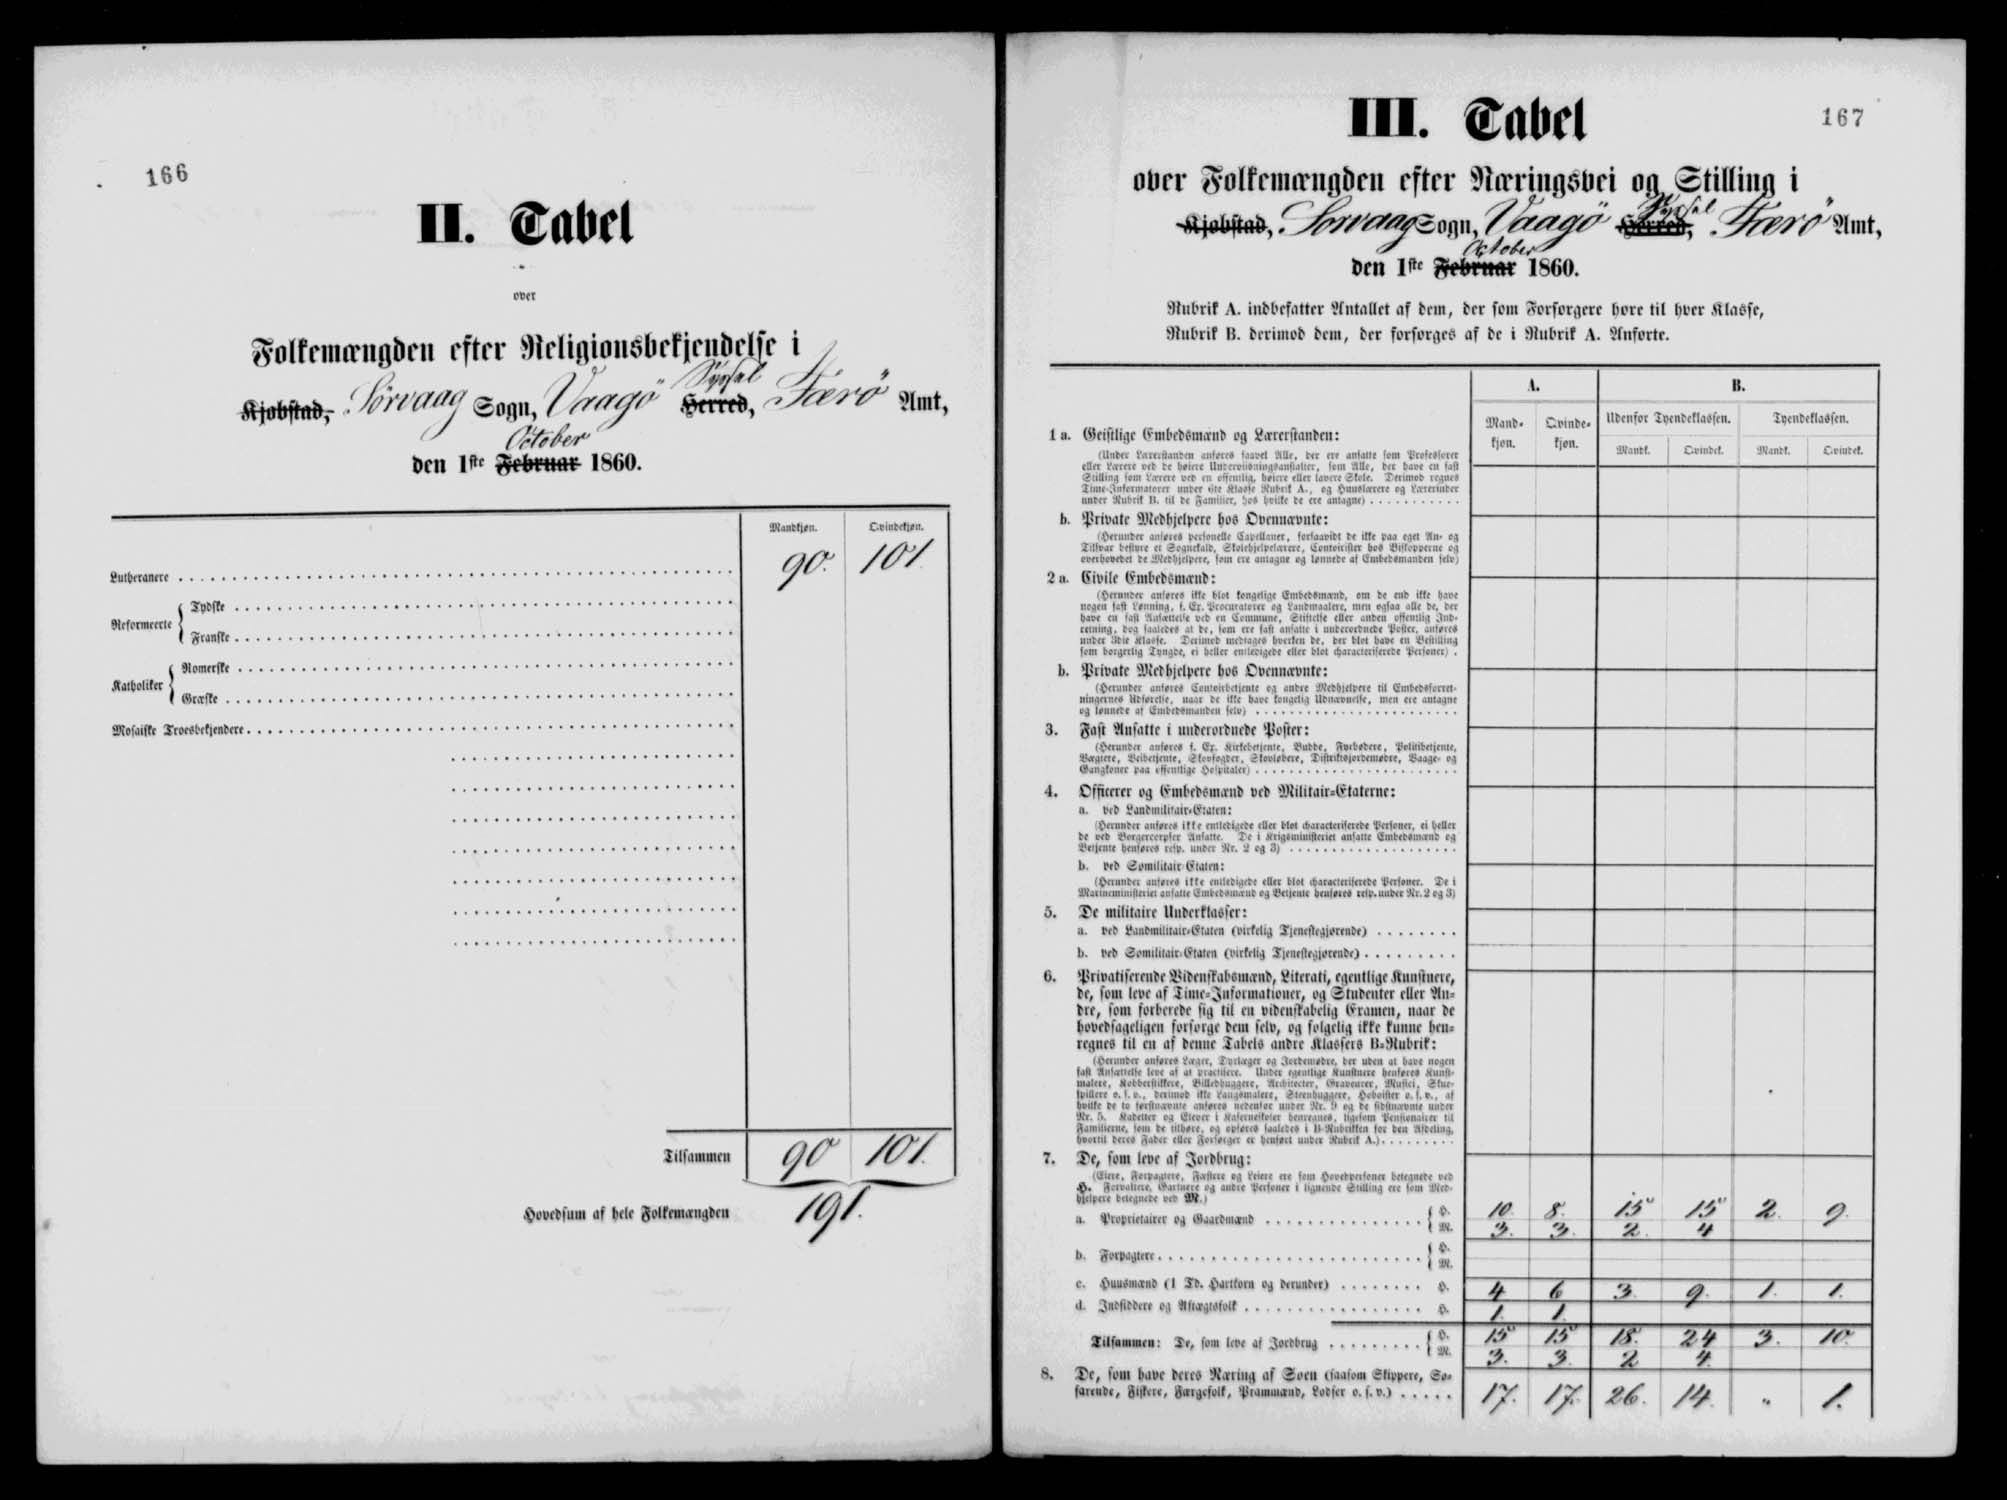 166
II. Tabel
over
Folkemængden efter Religionsbekjendelse i
Syssel
Kjøbstad, Sörvaag Sogn, Vaagö Herred, Færö Amt,
October
den 1ste Februar 1860.
Mandkjøn. Qvindekjøn.
Lutheranere 90. 101.
Reformeerte { Tydske
Franske
Katholiker { Romerske
Græske
Mosaiske Troesbekjendere
Tilsammen 90 101.
Hovedsum af hele Folkemængden 191.
167
III. Tabel
over Folkemængden efter Næringsvei og Stilling i
Syssel
Kjøbstad, Sörvaag Sogn, Vaagö Herred, Færö Amt,
October
den 1ste Februar 1860.
Rubrik A. indbefatter Antallet af dem, der som Forsørgere høre til hver Klasse,
Rubrik B. derimod dem, der forsørges af de i Rubrik A. Anførte.
A. B.
Mandkjøn. Qvindekjøn. Udenfor Tyendeklassen. Tyendeklassen.
Mandk. Qvindek. Mandk. Qvindek.
1 a. Geistlige Embedsmænd og Lærerstanden:
(Under Lærerstanden anføres saavel Alle, der ere ansatte som Professorer
eller Lærere ved de høiere Underviisningsanstalter, som Alle, der have en fast
Stilling som Lærere ved en offentlig, høiere eller lavere Skole. Derimod regnes
Time-Informatorer under 6te Klasse Rubrik A., og Huuslærere og Lærerinder
under Rubrik B. til de Familier, hos hvilke de ere antagne)
b. Private Medhjelpere hos Ovennævnte:
(Herunder anføres personelle Capellaner, forsaavidt de ikke paa eget An- og
Tilsvar bestyre et Sognekald, Skolehjelpelærere, Contoirister hos Biskopperne og
overhovedet de Medhjelpere, som ere antagne og lønnede af Embedsmanden selv)
2 a. Civile Embedsmænd:
(Herunder anføres ikke blot kongelige Embedsmænd, om de end ikke have
nogen fast Lønning, f. Ex. Procuratorer og Landmaalere, men ogsaa alle de, der
have en fast Ansættelse ved en Commune, Stiftelse eller anden offentlig Ind-
retning, dog saaledes at de, som ere fast ansatte i underordnede Poster, anføres
under 3die Klasse. Derimod medtages hverken de, der blot have en Bestilling
som borgerlig Tyngde, ei heller entledigede eller blot characteriserede Personer)
b. Private Medhjelpere hos Ovennævnte:
(Herunder anføres Contoirbetjente og andre Medhjelpere til Embedsforret-
ningernes Udførelse, naar de ikke have kongelig Udnævnelse, men ere antagne
og lønnede af Embedsmanden selv)
3. Fast Ansatte i underordnede Poster:
(Herunder anføres f. Ex. Kirkebetjente, Budde, Fyrbødere, Politibetjente,
Vægtere, Veibetjente, Skovfogder, Skovløbere, Distriktsjordemødre, Vaage- og
Gangkoner paa offentlige Hospitaler)
4. Officerer og Embedsmænd ved Militair-Etaterne:
a. ved Landmilitair-Etaten:
(Herunder anføres ikke entledigede eller blot characteriserede Personer, ei heller
de ved Borgercorpser Ansatte. De i Krigsministeriet ansatte Embedsmænd og
Betjente henføres resp. under Nr. 2 og 3)
b. ved Sømilitair-Etaten:
(Herunder anføres ikke entledigede eller blot characteriserede Personer. De i
Marineministeriet ansatte Embedsmænd og Betjente henføres resp. under Nr. 2 og 3)
5. De militaire Underklasser:
a. ved Landmilitair-Etaten (virkelig Tjenestegjørende)
b. ved Sømilitair-Etaten (virkelig Tjenestegjørende)
6. Privatiserende Videnskabsmænd, Literati, egentlige Kunstnere,
de, som leve af Time-Informationer, og Studenter eller An-
dre, som forberede sig til en videnskabelig Examen, naar de
hovedsageligen forsørge dem selv, og følgelig ikke kunne hen-
regnes til en af denne Tabels andre Klassers B-Rubrik:
(Herunder anføres Læger, Dyrlæger og Jordemødre, der uden at have nogen
fast Ansættelse leve af at practisere. Under egentlige Kunstnere henføres Kunst-
malere, Kobberstikkere, Billedhuggere, Architecter, Graveurer, Musici, Skue-
spillere o. s. v., derimod ikke Laugsmalere, Steenhuggere, Hoboister o. s. v., af
hvilke de to førstnævnte anføres nedenfor under Nr. 9 og de sidstnævnte under
Nr. 5. Kadetter og Elever i Kaserneskoler henregnes, ligesom Pensionairer til
Familierne, som de tilhøre, og opføres saaledes i B-Rubrikken for den Afdeling,
hvortil deres Fader eller Forsørger er henført under Rubrik A.)
7. De, som leve af Jordbrug:
(Eiere, Forpagtere, Fæstere og Leiere ere som Hovedpersoner betegnede ved
H. Forvaltere, Gartnere og andre Personer i lignende Stilling ere som Med-
hjelpere betegnede ved M.)
a. Proprietairer og Gaardmænd { H. 10. 8. 15 15 2. 9.
M. 3. 3. 2. 4
b. Forpagtere { H.
M.
c. Huusmænd (1 Td. Hartkorn og derunder) H. 4 6 3. 9. 1. 1.
d. Indsiddere og Aftægtsfolk H. 1. 1.
Tilsammen: De, som leve af Jordbrug { H. 15 15 18. 24 3. 10.
M. 3. 3. 2 4.
8. De, som have deres Næring af Søen (saasom Skippere, Sø-
farende, Fiskere, Færgefolk, Prammænd, Lodser o. s. v.) 17. 17. 26. 14. " 1.